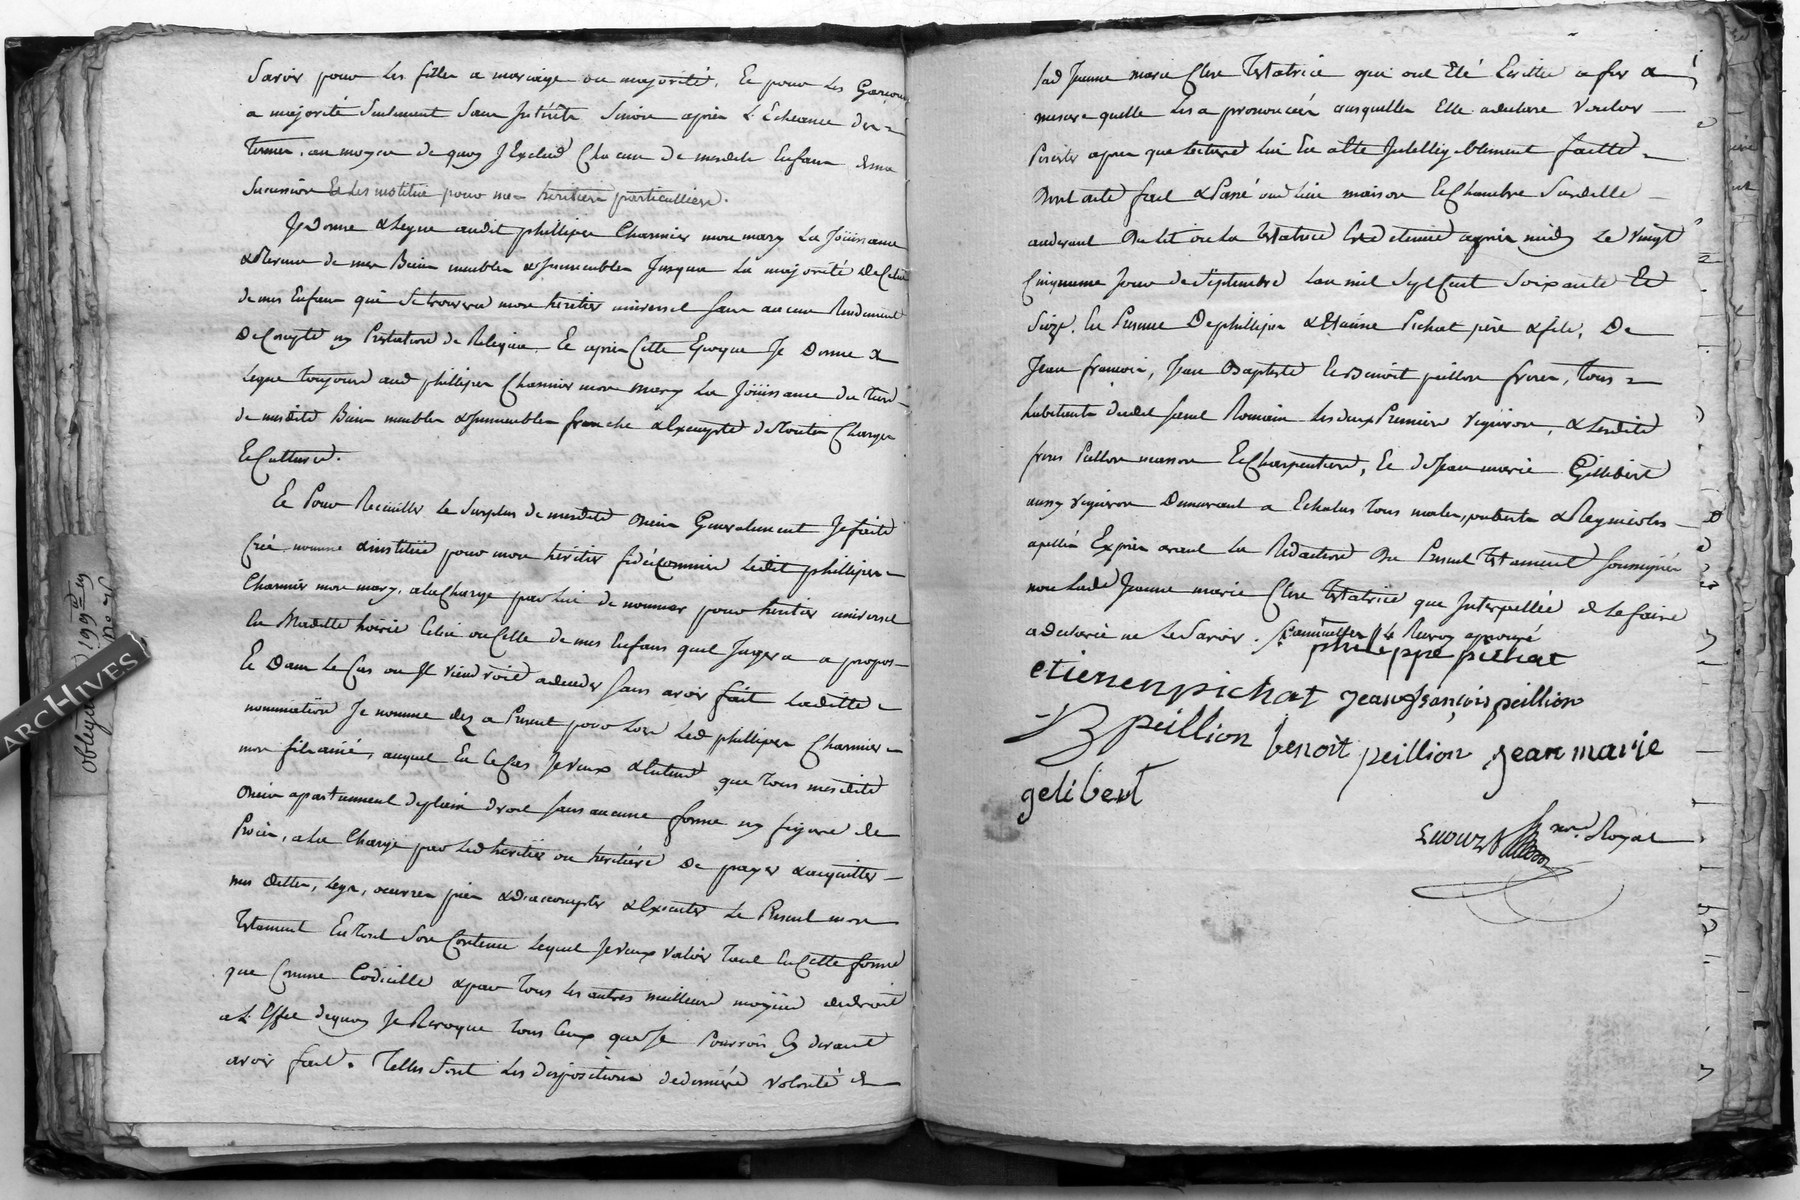 Savoir pour les filles a mariage ou majorité, Et pour les Garçons
a majorité Seulement Sans Intérêts Sinon après L'Echeance des
termes, au moyen de quoy J'Exclud Chacun de mesdits Enfans de ma
Succession Et Les institue pour mes héritiers particulliers.
Je Donne & Legue audit phillipes Charmier mon mary La Joüissance
& Revenu de mes Biens meubles & Immeubles Jusques La majorité De Celui
de mes Enfans qui Se trouvera mon heritier universel sans aucun Rendement
De Compte ny Prestation de Reliqua. Et après Cette Epoque Je Donne &
Legue toujours aud phillipes Charmier mon mary La Joüissance du tiers
de mesdits Biens meubles & Immeubles franche & Exempte de toutes Charges
Et Cultures.
Et Pour Recueillir Le Surplus de mesdits Biens Generalement Je faits
Créé, nomme & institüe pour mon héritier fidéiCommis Ledit phillipes
Charmier mon mary, a la Charge par lui de nommer pour heritier universel
En Maditte hoirie Celui ou Celle de mes Enfans quil Jugera a propos
Et Dans Le Cas ou Il viendroit a deceder sans avoir fait Laditte
nomination Je nomme dez a Present pour Lors Led phillipes Charmier
mon fils ainé, auquel En ce Cas Je Veux & Entend que tous mesdits
Biens apartiennent de plein droit sans aucune forme ny figure de
Procès, a la Charge par Led heritier ou heritiere De payer & acquitter
mes dettes, Legs, oeuvres pies & D'accomplir & Executer Le Present mon
testament En tout Son Contenu Lequel Je veux valoir tant En Cette forme
que Comme Codicille & par tous Les autres meilleurs moyens de droit
a L'Effet de quoy Je Revoque tous Ceux que Je Pourrois Cy devant
avoir fait. Telles Sont Les dispositions de derniere volonté de
Lad Jeanne marie Clere testatrice qui ont Eté Ecrittes a fur &
mesure quelle Les a prononcées ausquelles Elle a declaré vouloir
Persister apres que Lecture Lui En a Eté Intelligiblement faitte
Dont acte fait & Passé aud Lieu maison Et Chambre Sur delle
audevant Du lit ou La testatrice Est detenue après midy Le Vingt
Cinquieme Jour de Septembre Lan mil Sept Cent Soixante Et
Seize. En Presence De phillipes & Etienne Pichat père & fils, De
Jean françois, Jean Baptiste Et Benoit peillon freres, tous
habitants dudit Saint Romain les deux Premiers Vignerons, & Lesdits
freres Peillon masson Et Charpentiers, Et de Jean marie Gillibert
aussy vigneron Demeurant a Echalas tous males, puberes & Regnicoles
apellés Exprès avant La Redaction Du Present testament soussignés
non Lade Jeanne marie Clere testatrice que Interpellée de Le faire
a declaré ne Le Savoir.
philippe pichat
etienenpichat Jean François peillion
B peillion benoit peillion Jean marie
gelibert
nre. Royal
ARCHIVES